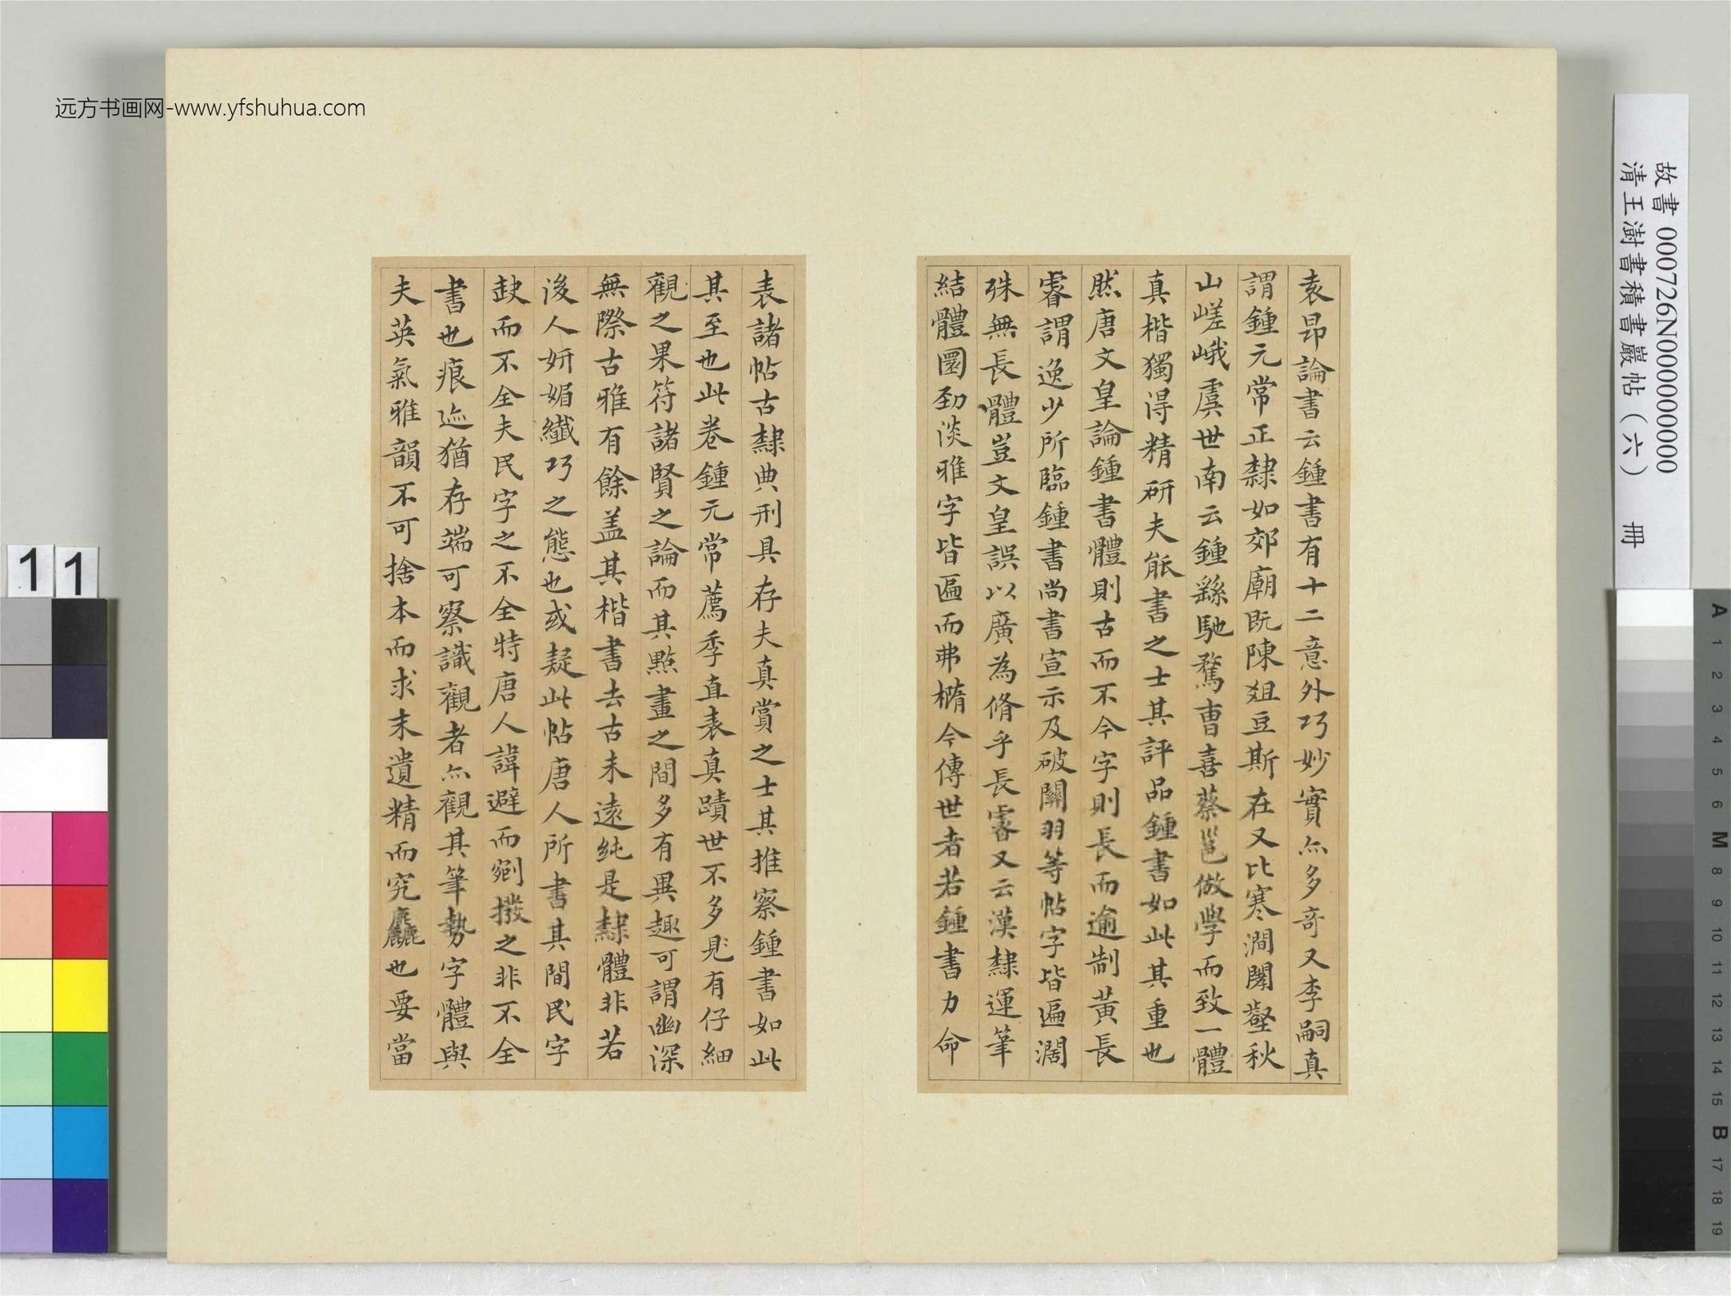 远方书画网-www.yfshuhua.com
故書 000726N000000000
清王澍書積書巖帖（六） 冊
袁昂論書云鍾書有十二意外巧妙實亦多奇又李嗣真
謂鍾元常正隸如郊廟既陳俎豆斯在又比寒澗閴壑秋
山嵯峨虞世南云鍾繇馳騖曺喜蔡邕倣學而致一體
真楷獨得精研夫能書之士其評品鍾書如此其重也
然唐文皇論鍾書體則古而不今字則長而逾制黃長
睿謂逸少所臨鍾書尚書宣示及破關羽等帖字皆匾闊
殊無長體豈文皇誤以廣為脩乎長睿又云漢隸運筆
結體圜劲淡雅字皆匾而弗橢今傳世者若鍾書力命
表諸帖古隸典刑具存夫真賞之士其推察鍾書如此
其至也此卷鍾元常薦季直表真蹟世不多見有仔細
觀之果符諸賢之論而其點畫之間多有異趣可謂幽深
無際古雅有餘盖其楷書去古未遠純是隸體非若
後人妍媚纖巧之態也或疑此帖唐人所書其間民字
缺而不全夫民字之不全特唐人諱避而剜撥之非不全
書也痕迹猶存端可察識觀者亦觀其筆勢字體與
夫英氣雅韻不可捨本而求末遺精而究麤也要當
11
11
A 1 2 3 4 5 6 M 8 9 10 11 12 13 14 15 B 17 18 19